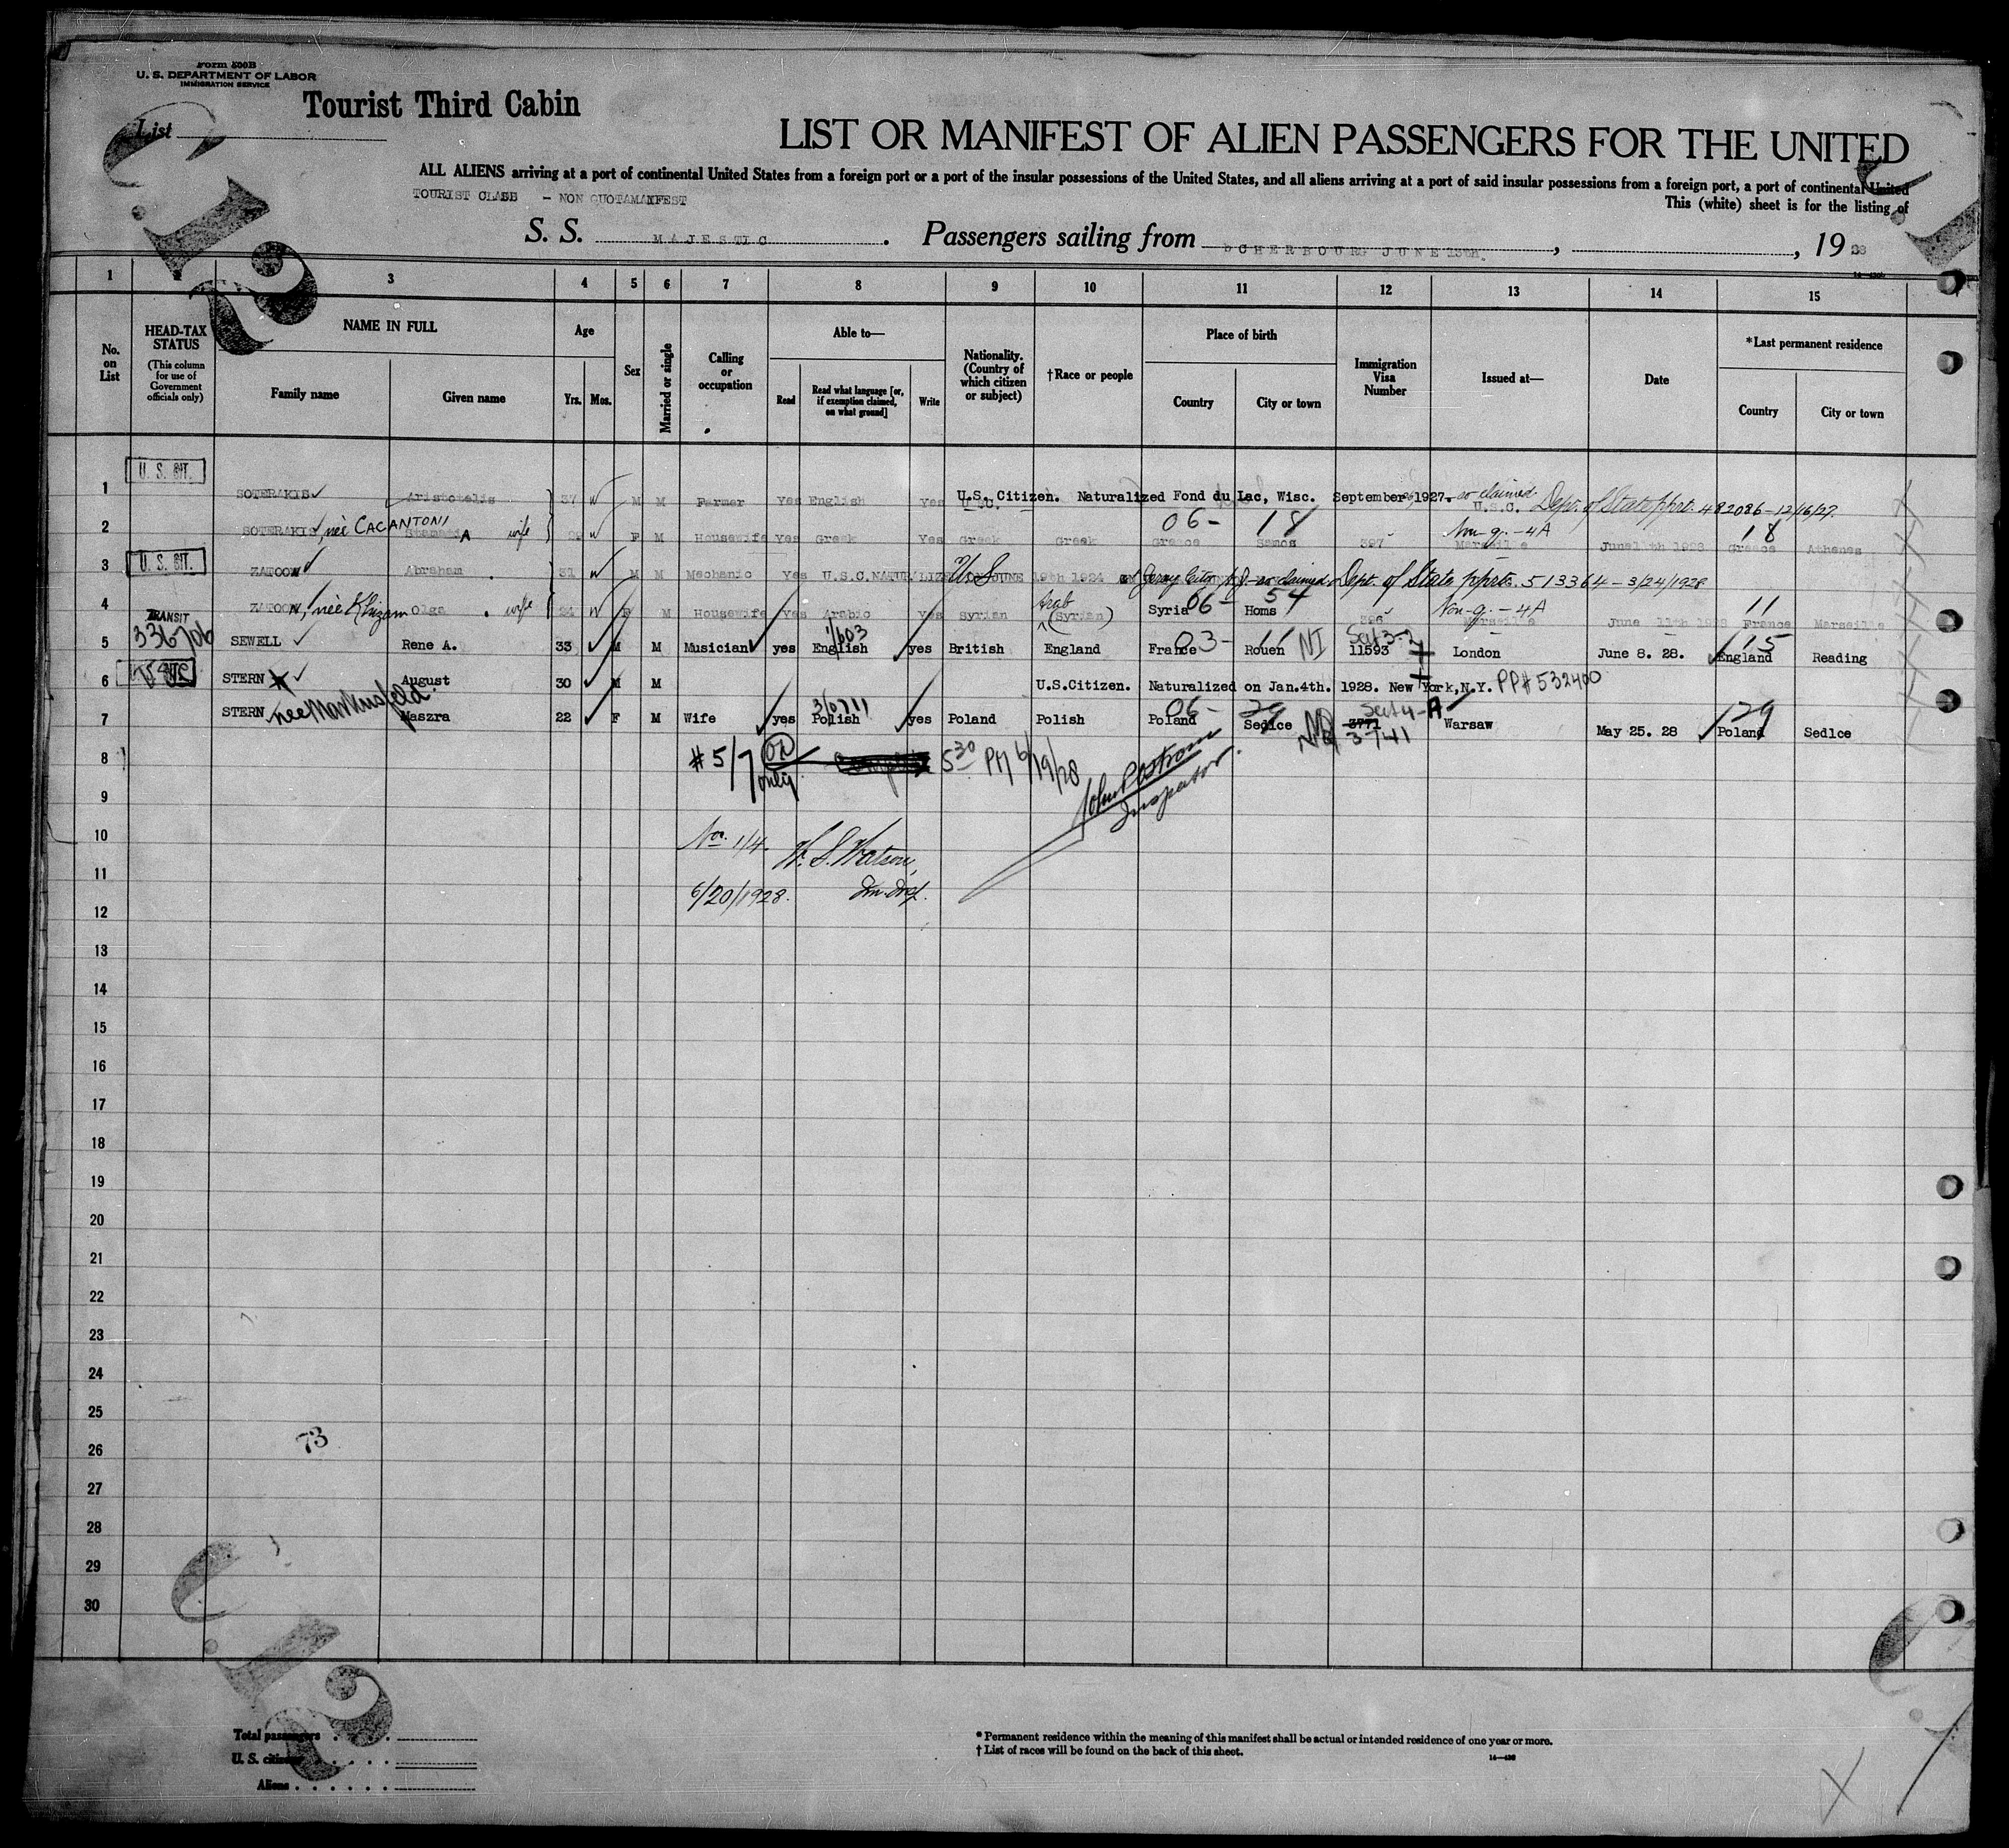 Form 500B
U. S. DEPARTMENT OF LABOR
IMMIGRATION SERVICE
Tourist Third Cabin
List
LIST OR MANIFEST OF ALIEN PASSENGERS FOR THE UNITED
ALL ALIENS arriving at a port of continental United States from a foreign port or a port of the insular possessions of the United States, and all aliens arriving at a port of said insular possessions from a foreign port, a port of continental United
TOURIST CLASS - NON QUOTAMANIFEST
This (white) sheet is for the listing of
S. S. MAJESTIC. Passengers sailing from CHERBOURG JUNE 13th, , 19 28
1 2 3 4 5 6 7 8 9 10 11 12 13 14 15
No. on List
HEAD-TAX STATUS
(This column for use of Government officials only)
NAME IN FULL
Family name Given name
Age
Yrs. Mos.
Sex
Married or single
Calling or occupation
Able to—
Read Read what language [or, if exemption claimed, on what ground] Write
Nationality. (Country of which citizen or subject)
†Race or people
Place of birth
Country City or town
Immigration Visa Number
Issued at—
Date
*Last permanent residence
Country City or town
1 U. S. CIT. SOTERAKIS Aristotelis 37 M M Farmer Yes English Yes U.S. Citizen. Naturalized Fond du Lac, Wisc. September 1927. so claimed U.S.C. Dept. of State pprt. 482086-12/16/27.
06- 18 Non-q. - 4A 18
2 SOTERAKIS, née CACANTONI wife F M Housewife Yes Greek Yes Greek Greek Greece Samos 397 Marseille June 11th 1928 Greece Athenes
3 U. S. CIT. ZATOON Abraham 31 M M Mechanic Yes U.S.C. NATURALIZED U.S JUNE 19th 1924 at Jersey City N.J. so claimed Dept. of State pprt. 513364-3/24/1928
Arab 06- 54 Non-q. - 4A 11
4 ZATOON, née Khizam Olga wife 24 F M Housewife Yes Arabic yes Syrian (Syrian) Syria Homs 396 Marseille June 11th 1928 France Marseille
TRANSIT
336706 1/603 03- 11 NI Sec 3-2 15
5 SEWELL Rene A. 33 M M Musician yes English yes British England France Rouen 11593 London June 8. 28. England Reading
6 STERN August 30 M M U.S.Citizen. Naturalized on Jan.4th. 1928. New York,N.Y. PP# 532400
06- 29 Sect 4-A 29
7 STERN Maszra 22 F M Wife yes Polish yes Poland Polish Poland Sedlce 3771 3741 Warsaw May 25. 28 Poland Sedlce
8 #5/7 OK only 5 30 PM 6/19/28
John Postrom
Inspector.
9
10 Nos. 1/4. W. S. Watson,
11
6/20/1928.
12
13
14
15
16
17
18
19
20
21
22
23
24
25
26 73
27
28
29
30
Total passengers
U. S. citizens
Aliens
* Permanent residence within the meaning of this manifest shall be actual or intended residence of one year or more.
† List of races will be found on the back of this sheet.